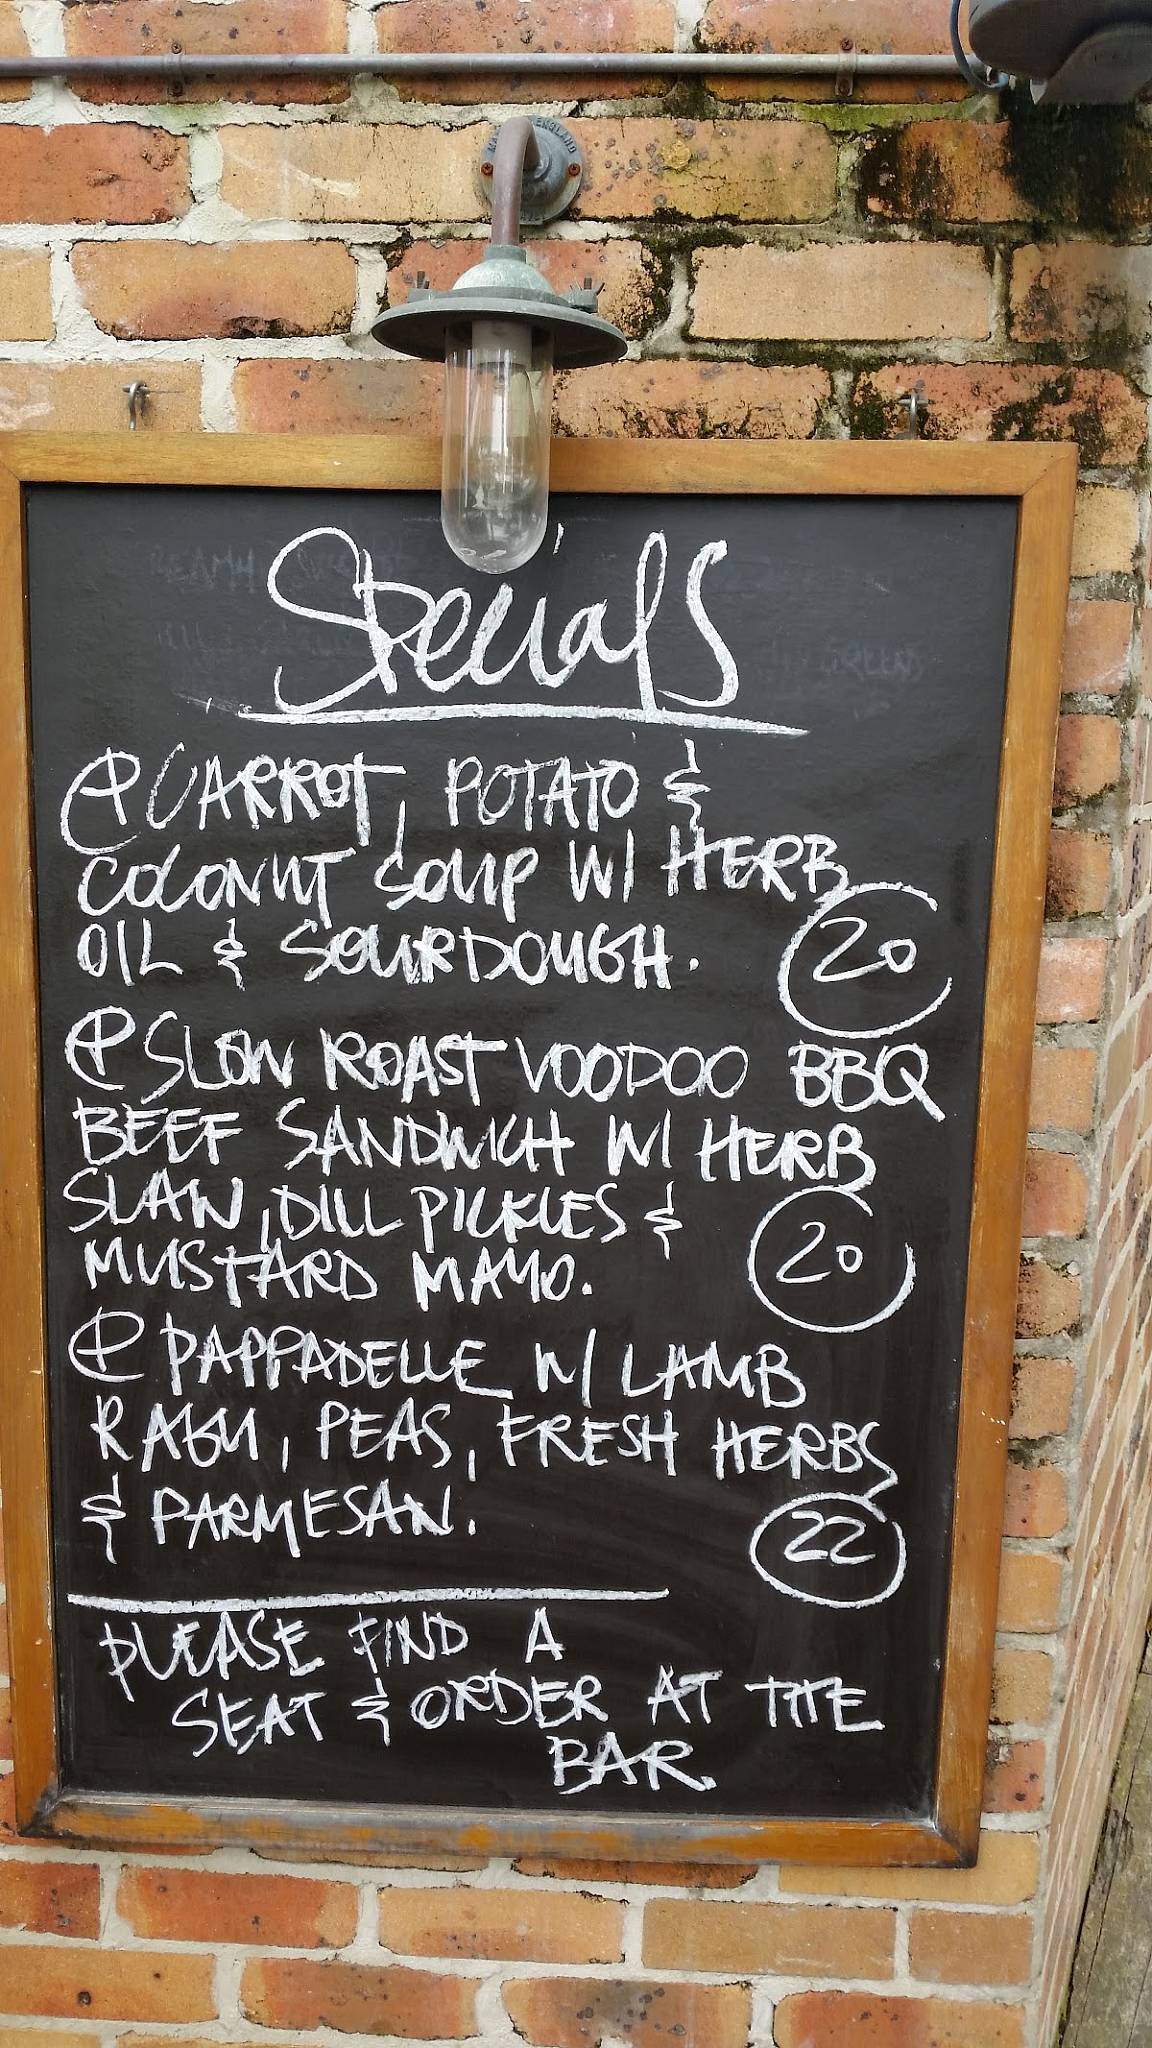 MADE IN ENGLAND
Specials
CARROT, POTATO &
COCONUT SOUP W/ HERB
OIL & SOURDOUGH. 20
SLOW ROAST VOODOO BBQ
BEEF SANDWICH W/ HERB
SLAW, DILL PICKLES &
MUSTARD MAYO. 20
PAPPADELLE W/ LAMB
RAGU, PEAS, FRESH HERBS
& PARMESAN. 22
PLEASE FIND A
SEAT & ORDER AT THE
BAR.